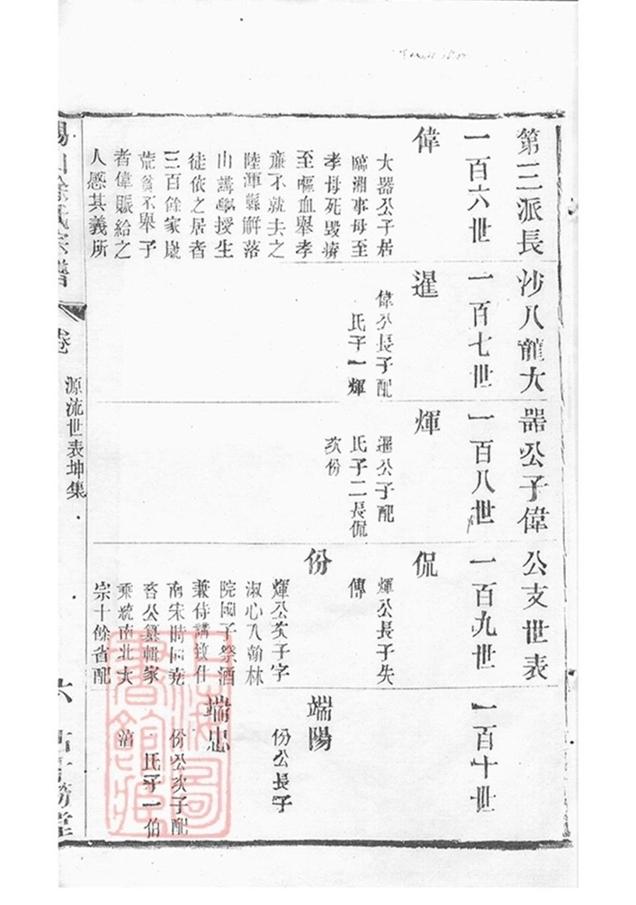 第三派長沙八龍大器公子偉公支世表
一百六世
一百七世
一百八世
一百九世
一百十世
偉
大器公子居
臨湘事母至
孝母死毀瘠
至嘔血舉孝
廉不就去之
陸渾縣解落
山講學授生
徒依之居者
三百餘家歲
荒貧不舉子
者偉賑給之
人感其義所
暹
偉公長子配
氏子一輝
煇
暹公子配
氏子二長侃
次份
侃
煇公長子失
傳
份
煇公次子字
淑心入翰林
院國子祭酒
兼侍講致仕
南宋時同堯
咨公纂輯家
乘統南北大
宗十餘省配
端陽
份公長子
端忠
份公次子配
氏子一伯
清
宗譜
卷
源流世表坤集
六
上海圖書館藏